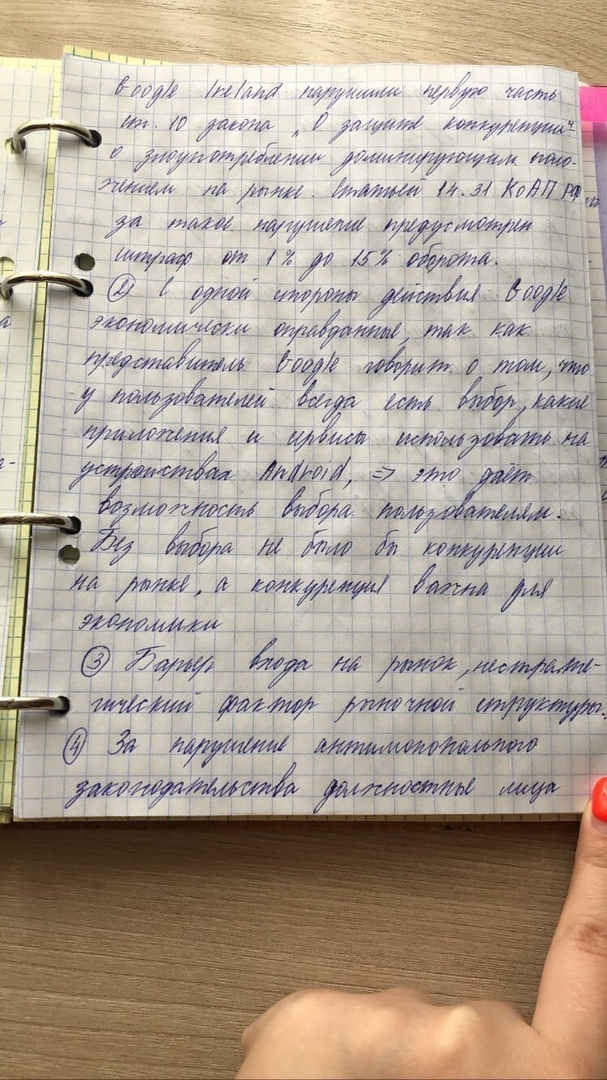 Google Ireland нарушили первую часть
ст. 10 закона „О защите конкуренции"
о злоупотреблении доминирующим поло-
жением на рынке. Статьей 14.31 КоАП РФ
за такое нарушение предусмотрен
штраф от 1% до 15% оборота.
② С одной стороны действия Google
экономически оправданные, так как
представитель Google говорит о том, что
у пользователей всегда есть выбор, какие
приложения и сервисы использовать на
устройствах Android, => это даёт
возможность выбора пользователям.
Без выбора не было бы конкуренции
на рынке, а конкуренция важна для
экономики
③ Барьер входа на рынок, нестрате-
гический фактор рыночной структуры.
④ За нарушение антимонопольного
законодательства должностные лица